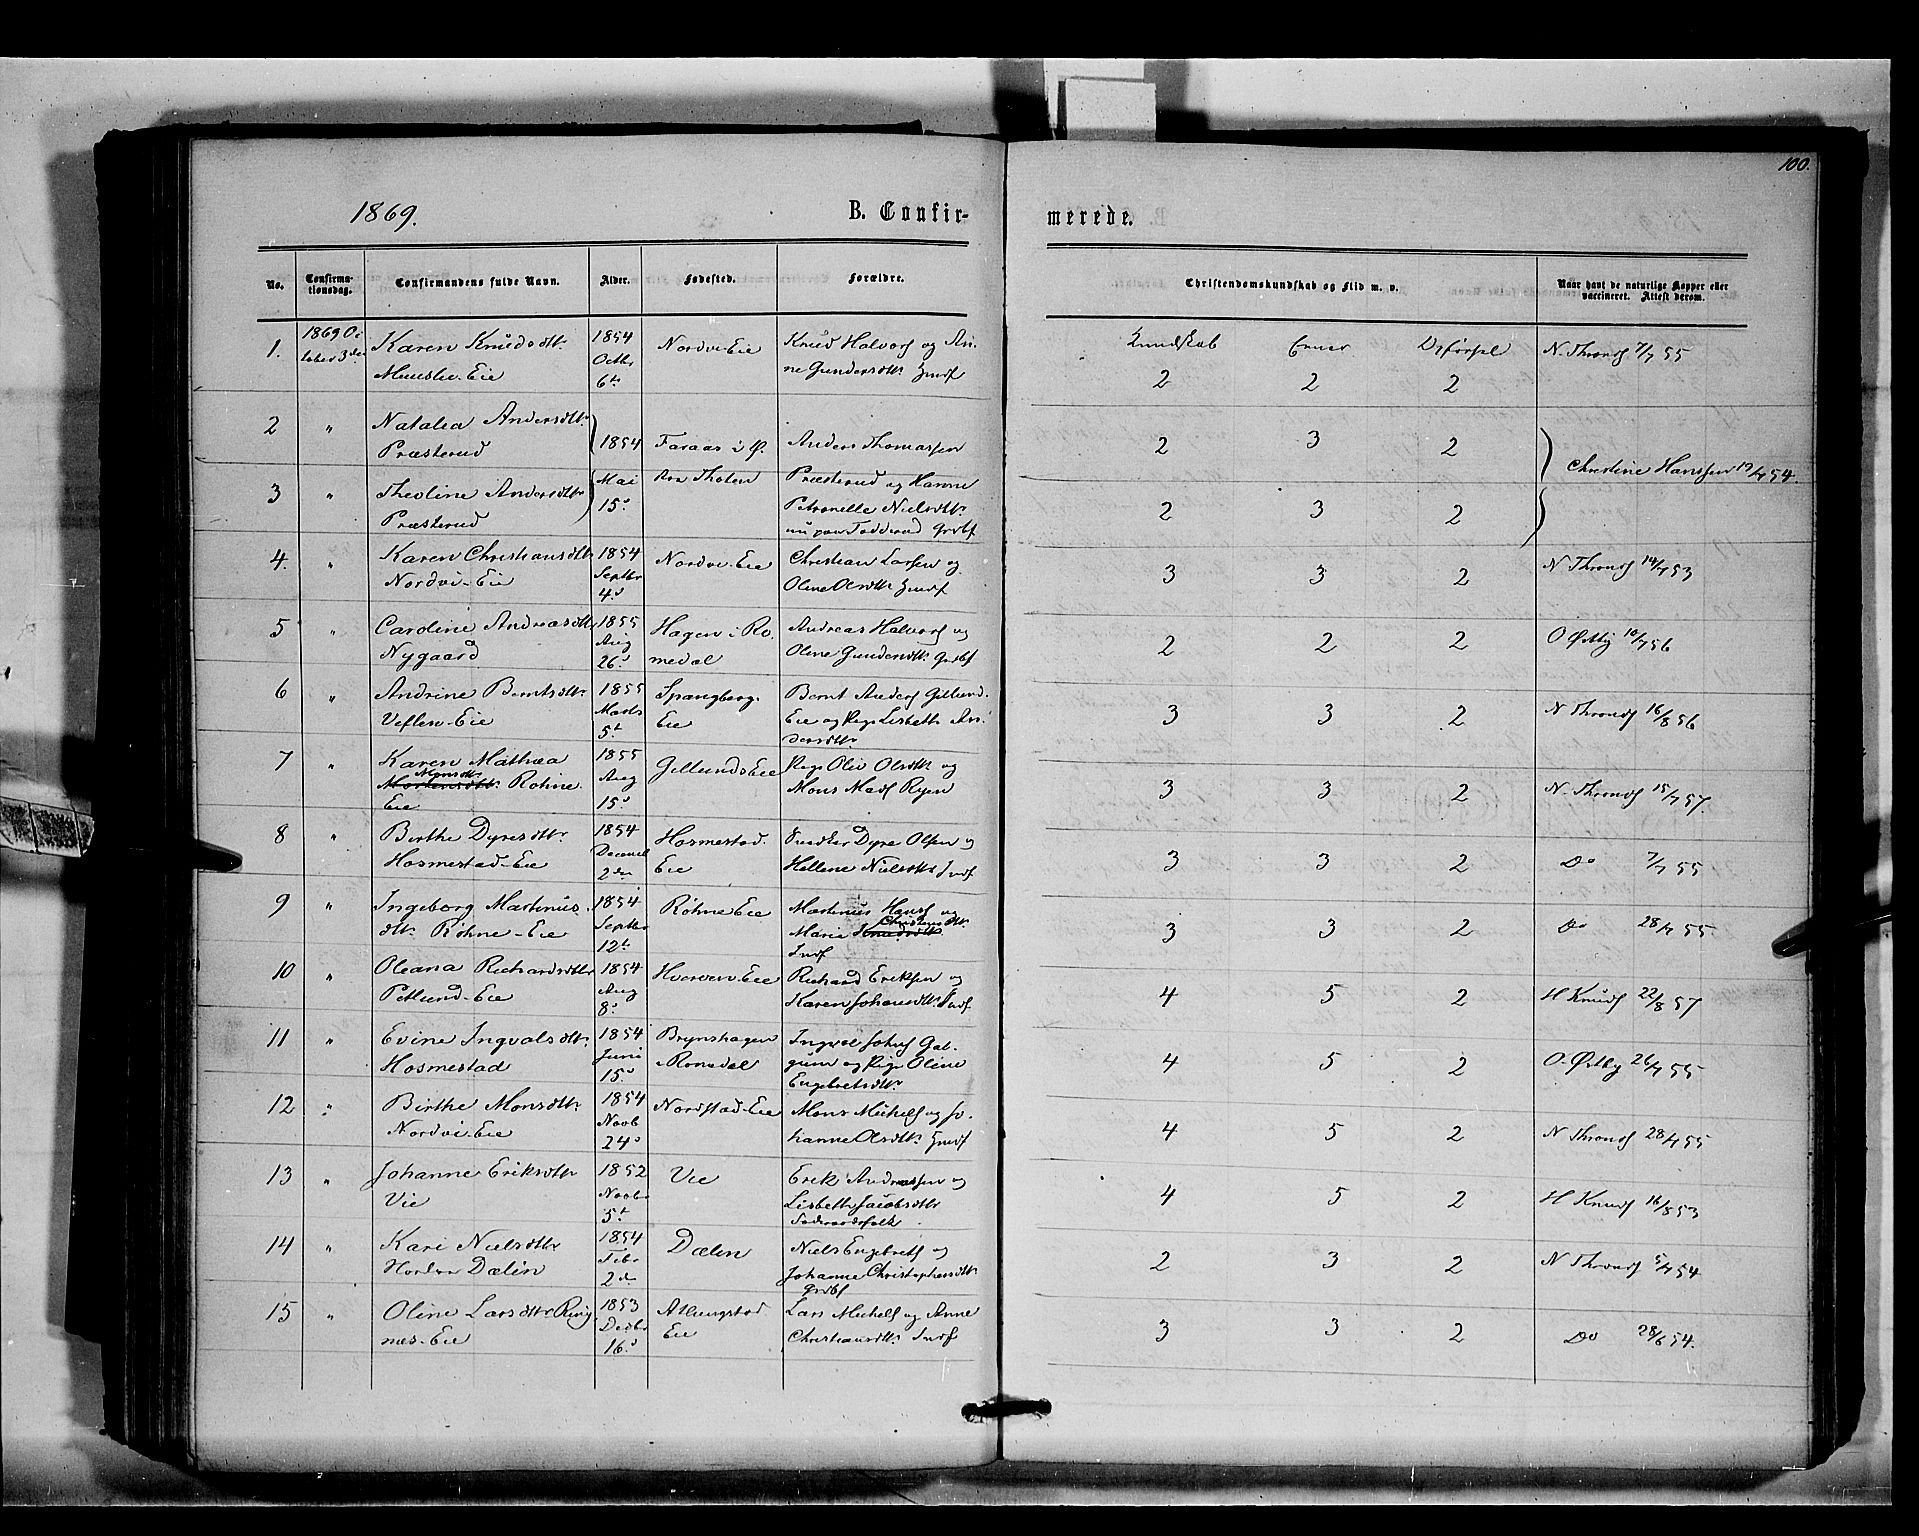 100.
1869.
B. Confir-
merede.
No.
Confirma-
tionsdag.
Confirmandens fulde Navn.
Alder.
Fødested.
Forældre.
Christendomskundskab og Flid m. v.
Naar havt de naturlige Kopper eller
vaccineret. Attest derom.
Kundskab Evner
1. 1869 Oc
tober 3die
Karen Knudsdtr.
Eie
1854
Octbr
6te
Nordvi-Eie
Knud Halvors og An-
ne Gundersdtr.
2 2 2
N. Throns 7/7 55
2 "
Natalia Andersdtr.
Præsterud
1854
Mai
15.
Faraas i Ø.
Thoten
Anders Thomassen
Præsterud og Hanne
Petronelle Nielsdtr.
2 3 2
Christine Hanssen 19/7 54.
3 "
Theoline Andersdtr
Præsterud
2 3 2
4. "
Karen Christiansdtr
Nordvi-Eie
1854
Septbr
4.
Nordvi-Eie
Christian Larsen og
Oline Olsdtr.
3 3 2
N Throns 14/7 53
5 "
Caroline Andreasdtr
Nygaard
1855
Aug
26.
Hagen i Ro-
medal
Andreas Halvors og
Oline Gundersdtr.
2 2 2
O Østby 10/7 56
6 "
Andrine Berntsdtr.
Veflen-Eie
1855
Marts
5te
Spangberg-
Eie
Bernt Anders Gillund-
Eie og Pige Lisbeth An-
dersdtr.
3 3 2
N Throns 16/8 56
7 "
Karen Mathea
Monsdtr.
Mortensdtr. Rohne
Eie
1855
Aug
15.
Gillunds Eie
Pige Oliv Olsdtr. og
Mons Mads Ryen
3 3 2
N. Throns 15/7 57.
8 "
Birthe Dyresdtr.
Hosmestad-Eie
1854
2den
Hosmestad-
Eie
Snedker Dyre Olsen og
Hellene Nielsdtr.
3 3 2
Do 7/7 55
9 "
Ingeborg Martinus-
dtr. Røhne-Eie
1854
Septbr
12te
Røhne Eie
Martinus Hans og
Christensdtr.
Marie Knudsdtr.
3 3 2
Do 28/7 55
10 "
Oleana Richardsdtr
Petlund-Eie
1854
Aug
8.
Hverven-Eie
Richard Eriksen og
Karen Johansdtr.
4 5 2
H Knuds 22/8 57
11 "
Evine Ingvalsdtr.
Hosmestad
1854
Juni
15.
Brynshagen
i Romedal
Ingval Johns Gal-
gum og Pige Oline
Engebretsdtr.
4 5 2
O. Østby 26/7 55
12 "
Birthe Monsdtr.
Nordvi-Eie
1854
Novb
24.
Nordstad-Eie
Mons Michels og Jo-
hanne Olsdtr.
4 5 2
N Throns 28/7 55
13 "
Johanne Eriksdtr
Vie
1852
Novbr
5te
Vie
Erik Andreassen og
Lisbeth Jacobsdtr
4 5 2
H Knuds 16/8 53
14 "
Kari Nielsdtr
Dælin
1854
Febr
2den
Dælin
Niels Engebrets og
Johanne Christophersdtr.
2 3 2
N Throns 5/7 54
15 "
Oline Larsdtr Ring-
nes-Eie
1853
Decbr
16.
Atlungstad
Eie
Lars Michels og Anne
Christiansdtr.
3 3 2
Do 28/6 54.